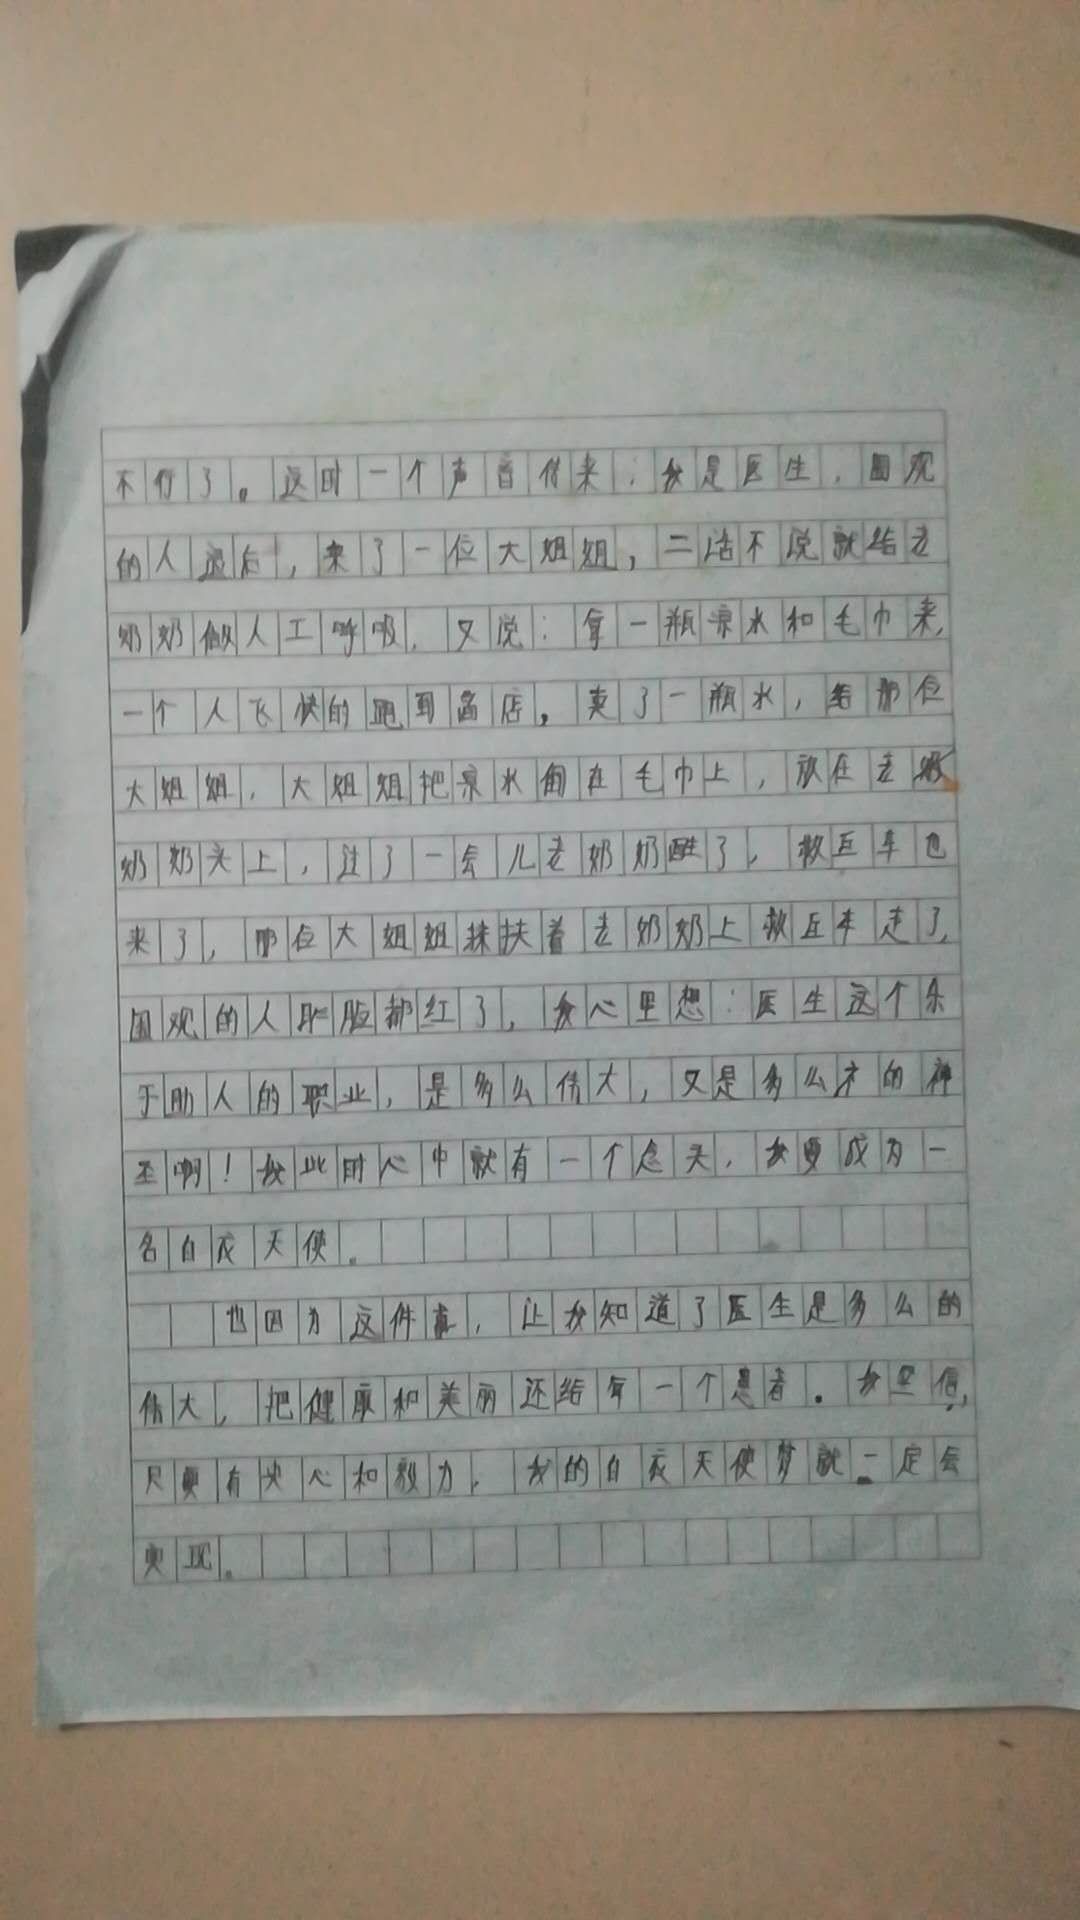 不行了。这时一个声音传来:我是医生,围观
的人退后,来了一位大姐姐,二话不说就给老
奶奶做人工呼吸,又说:拿一瓶凉水和毛巾来,
一个人飞快的跑到商店,卖了一瓶水,给那位
大姐姐,大姐姐把凉水倒在毛巾上,放在老
奶奶头上,过了一会儿老奶奶醒了,救互车也
来了,那位大姐姐扶着老奶奶上救互车走了,
围观的人脸都红了,我心里想:医生这个乐
于助人的职业,是多么伟大,又是多么才的神
圣啊!我此时心中就有一个念头,我要成为一
名白衣天使。
也因为这件事,让我知道了医生是多么的
伟大,把健康和美丽还给每一个患者。我坚信,
只要有决心和毅力,我的白衣天使梦就一定会
实现。